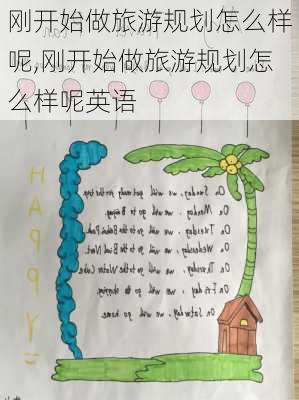 刚开始做旅游规划怎么样
呢,刚开始做旅游规划怎
么样呢英语
H
A
P
P
Y
On Sunday, we will get ready for the trip.
On Monday, we will go to Beijing.
On Tuesday, we will go to the Park.
On Wednesday, we will go to the Bird Nest.
On Thursday, we will go to the Water Cube.
On Friday, we will go shopping.
On Saturday, we will go home.